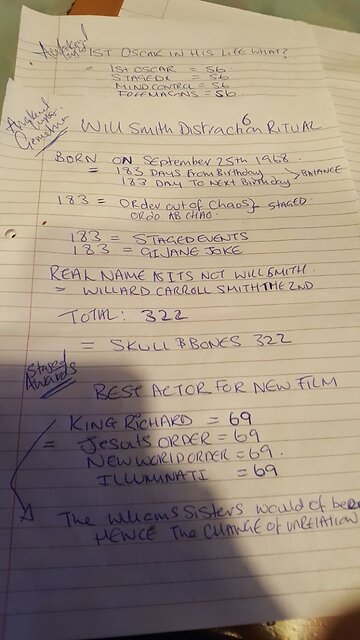 1ST OSCAR IN HIS LIFE WHAT?
1ST OSCAR = 56
STAGED = 56
MIND CONTROL = 56
= 56
6
WILL SMITH DISTRACTION RITUAL
BORN ON SEPTEMBER 25th 1968.
= 183 DAYS FROM BIRTHDAY
183 DAY TO NEXT BIRTHDAY > BALANCE
183 = ORDER OUT OF CHAOS } STAGED.
ORDO AB CHAO.
183 = STAGED EVENTS
183 = GI JANE JOKE
REAL NAME AS ITS NOT WILL SMITH.
= WILLARD CARROLL SMITH THE 2ND
TOTAL: 322
= SKULL & BONES 322
Staged
Awards
BEST ACTOR FOR NEW FILM
KING RICHARD = 69
= JESUITS ORDER = 69
NEW WORLD ORDER = 69.
ILLUMINATI = 69
The Williams Sisters would of
HENCE THE CHANGE OF